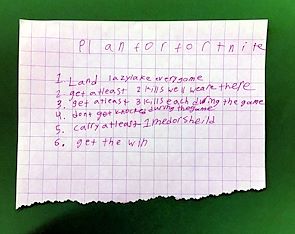 Plan for fortnite
1. Land lazylake every game
2 get atleast 2 kills well weare there
3. get atleast 3 kills each during the game
4. dont get knocked during the game
5. carry atleast 1 med or sheild
6. get the win